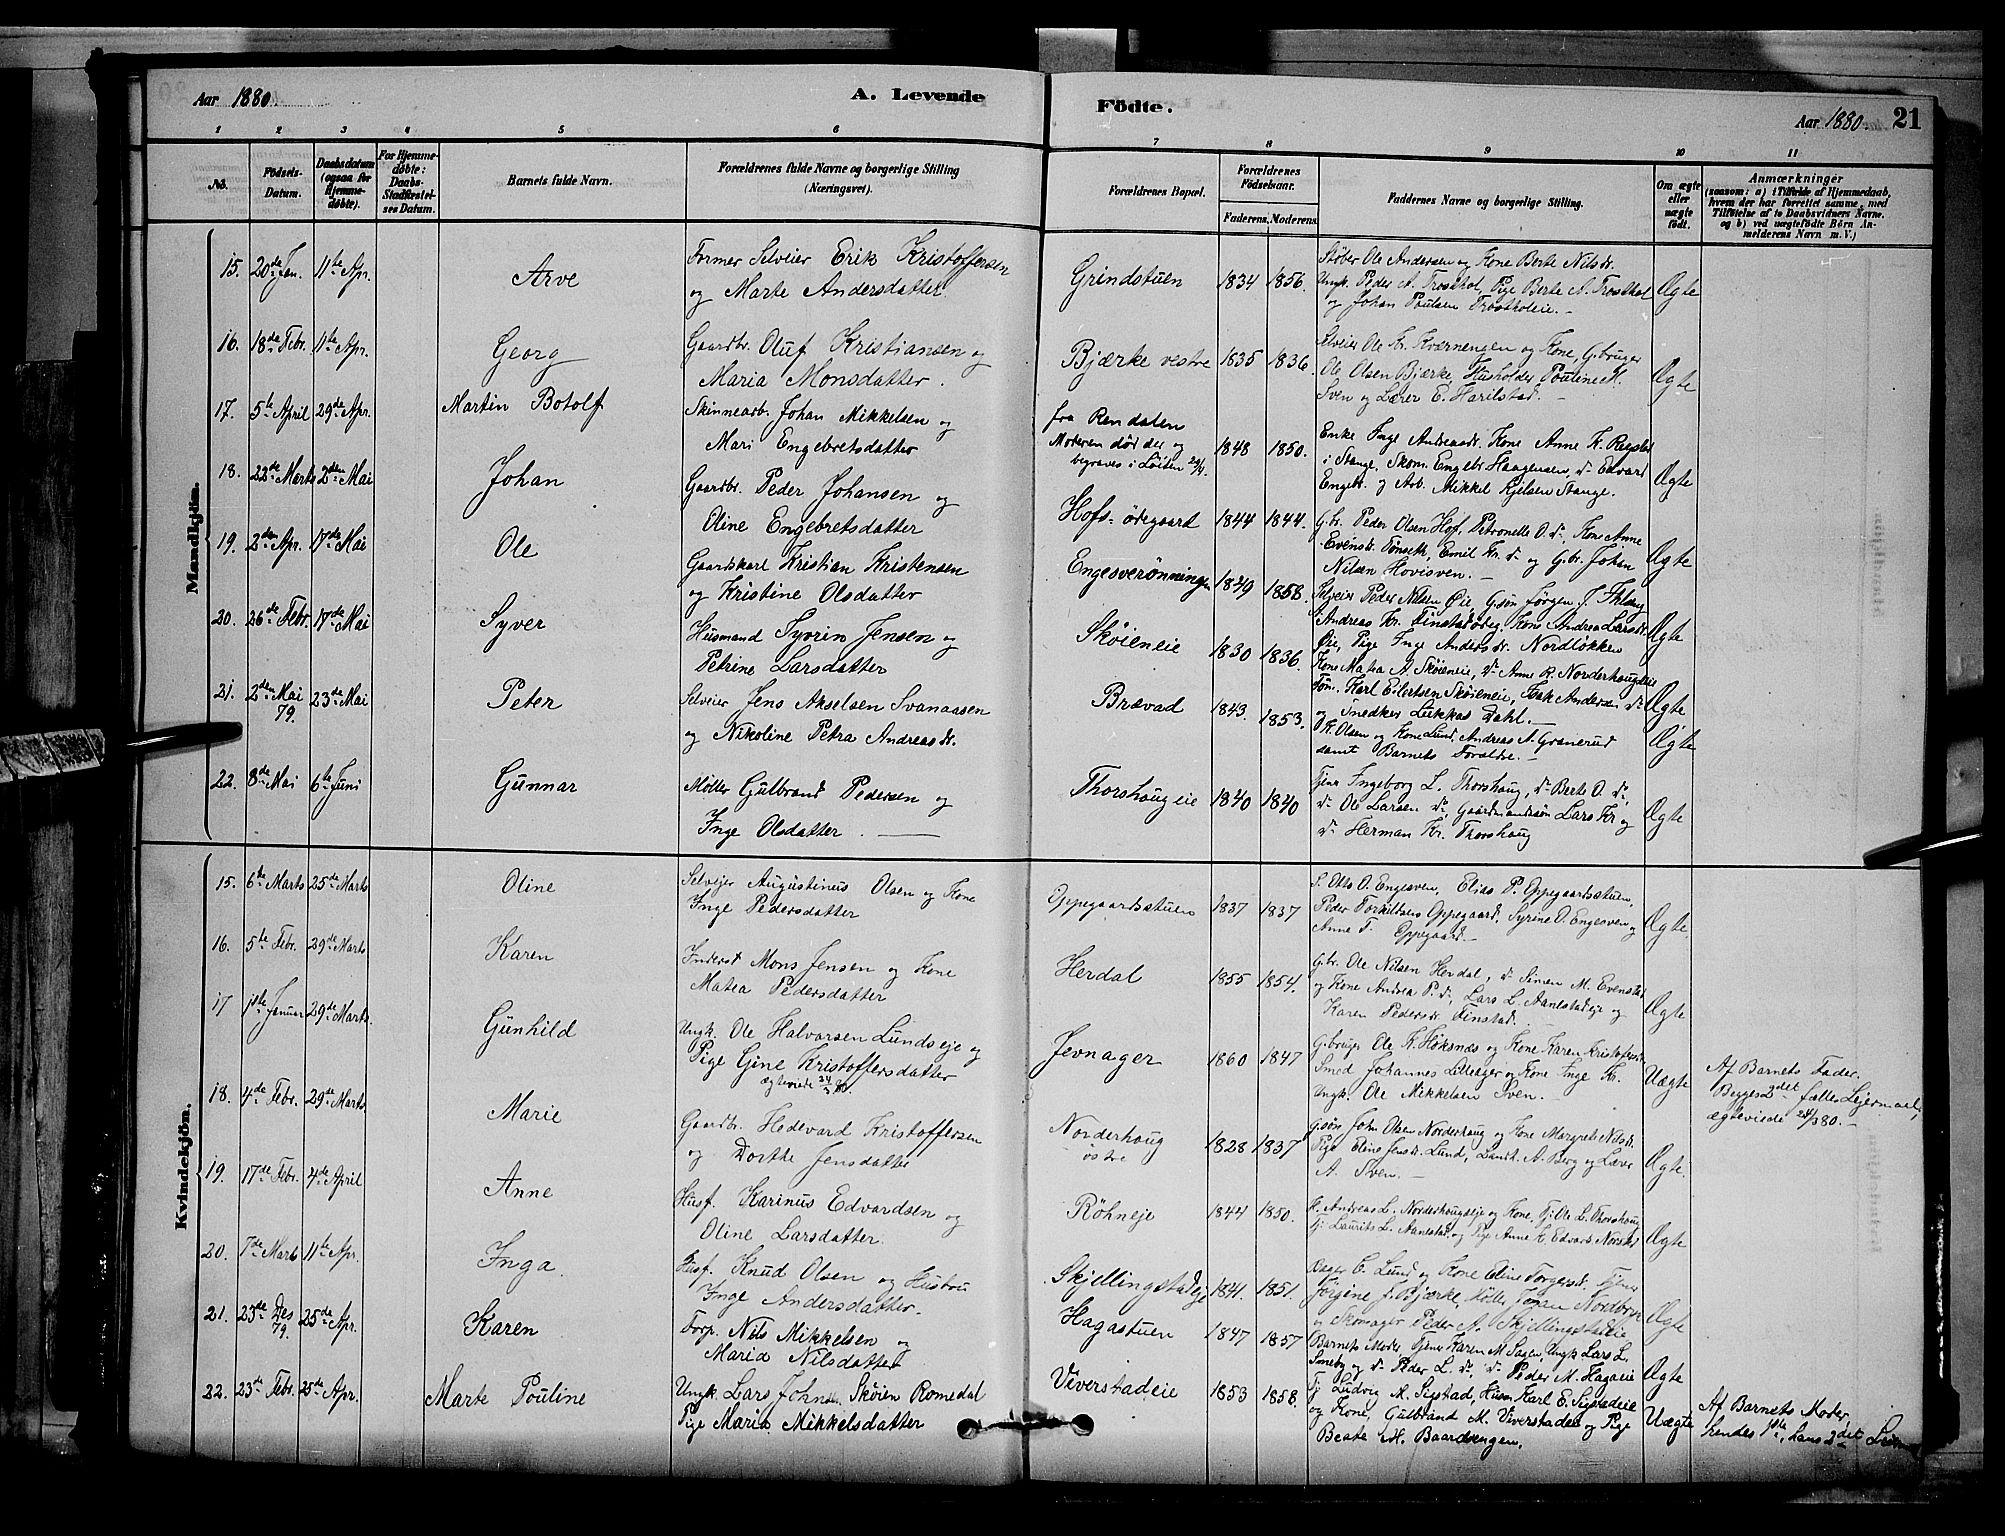 Aar 1880.
A. Levende
Fødte.
Aar 1880.
21
1 2 3 4 5 6 7 8 9 10 11
No.
Fødsels-Datum.
Daabsdatum (ogsaa for Hjemmedøbte).
For Hjemmedøbte: Daabs-Stadfæstelses Datum.
Barnets fulde Navn.
Forældrenes fulde Navne og borgerlige Stilling (Næringsvei).
Forældrenes Bopæl.
Forældrenes Fødselsaar.
Faderens. Moderens.
Faddernes Navne og borgerlige Stilling.
Om ægte eller uægte født.
Anmærkninger
(saasom: a) i Tilfælde af Hjemmedaab, hvem der har forrettet samme, med Tilføielse af to Daabsvidners Navne, og b) ved uægtefødte Børn Anmelderens Navn m. V.)
Mandkjön.
15. 20de Jan. 11te Apr. Arve
Former Selveier Erik Kristoffersen
og Marte Andersdatter.
Grindstuen 1834 1856.
Støber Ole Andersen og Kone Berte Nilsdr.
Ungk. Peder A. Trosthol, Pige Berte A. Trosthol
og Johan Poulsen Trostholeie. —
Ægte
16. 18de Febr. 11te Apr. Georg
Gaardbr. Oluf Kristiansen og
Maria Monsdatter.
Bjærke vestre 1835 1836.
Selveier Ole Kr. Kværnengen og Kone, G.bruger
Ole Olsen Bjærke, Husholder Pouline M.
Sven og Lærer E. Harilstad. —
Ægte
17. 5te April 29de Apr. Martin Botolf
Skinnearb. Johan Mikkelsen og
Mari Engebretsdatter
fra Rendalen
Moderen død der og
begraves i Löiten 29/4.
1848 1850.
Enke Inge Andreasdr. Kone Anne K.
i Stange, Skom. Engebr. Haagensen, do Edvard
Engebr. og Arb. Mikkel Kjelsen Stange.
Ægte
18. 22de Marts 2den Mai Johan
Gaardbr. Peder Johansen og
Oline Engebretsdatter
Hofs-ødegaart 1844 1844.
G.br. Peder Olsen Hof, Petronelle O. do, Kone Anne
Evensdr. Tønseth, Emil Kr. do og G.br. Johan
Nilsen Hovisven. —
Ægte
19. 2den Apr. 17de Mai Ole
Gaardskarl Kristian Kristensen
og Kristine Olsdatter
Engesverønningen 1849 1858.
Selveier Peder Nilsen Øie, G.søn Jørgen J.
Andreas Kr. Finstadødeg. Kone Andrea Larsdr.
Øie, Pige Inge Andersdr. Nordløkken
Ægte
20. 26de Febr. 17de Mai Syver
Husmand Syvrin Jensen og
Petrine Larsdatter
Skøieneie 1830 1836.
Kone Matea A. Skøieneie, do Anne R. Norderhougeie
Tøm. Karl Eilertsen Skøieneie, Isak Andersen do
og Snedker Lukkas Dahl. —
Ægte
21. 2den Mai 79. 23de Mai Peter
Selveier Jens Akselsen Svanaasen
og Nikoline Petra Andreasdr.
Brævad 1843. 1853.
K. Olsen og Kone Lund, Andreas A. Granerud
samt Barnets Forældre. —
Ægte
22. 8de Mai 6te Juni Gunnar
Møller Gulbrand Pedersen og
Inge Olsdatter. —
Thorshougeie 1840 1840
Tjener Ingeborg L. Thorshoug, do Berte O. do,
do Ole Larsen do, Gaardmandsøn Lars Kr og
do Herman Kr. Thorshoug
Ægte
Kvindekjön.
15. 6te Marts 25de Marts Oline
Selvejer Augustinus Olsen og Kone
Inge Pedersdatter
Oppegaardsstuen 1837 1837
S. Otto O. Engesven, Elias P. Oppegaardsstuen,
Peder Torkildsen Oppegaard, Syrine O. Engesven og
Anne T. Oppegaard. —
Ægte.
16. 5te Febr. 29de Marts Karen
Inderst Mons Jensen og Kone
Matea Pedersdatter
Herdal 1855 1854.
G.br. Ole Nilsen Herdal, do Simen M. Evenstad
og Kone Andrea P. do, Lars L. Aanlestadeje og
Karen Pedersdr. Finstad.
Ægte
17 1ste Januar 29de Marts. Gunhild
Ungk. Ole Halvorsen Lundseje og
Pige Gine Kristoffersdatter
ægteviede 24/3 80.
Jevnager 1860 1847
G.bruger Ole K. Høksnæs og Kone Karen Kristoffersdr
Smed Johannes og Kone Inge Kr.
Ungk. Ole Mikkelsen Sven.
Uægte
Af Barnets Fader.
Begges 2det fælles Lejermaal,
ægteviede 24/3 80. —
18. 4de Febr. 29de Marts. Marie
Gaardbr. Hedevard Kristoffersen
og Dorthe Jensdatter
Norderhoug østre 1828 1837
G.søn John Olsen Norderhoug og Kone Margrete Nilsdr.
Pige Eline Jensdr. Lund, Landh. A. Berg og Lærer
A. Sven. —
Ægte.
19. 17de Febr. 4de April Anne
Husf. Karinus Edvardsen og
Oline Larsdatter.
Röhneje 1844 1850.
H. Andreas L. Norderhougseje og Kone, Tj. Ole L. Thorshoug
Tj. Laurits L. Aanlestad, og Pige Anne K. Edvards
Ægte
20. 7de Marts 11te Apr. Inga.
Husf. Knud Olsen og Hustru
Inge Andersdatter. —
Skjellingstadeje 1841. 1851.
C. Lund og Kone Eline Torgersdr. Tjener
Jørgine J. Bjærke, Møller Johan
og Skomager Peder A. Skjellingstadeie
Ægte
21. 23de Des 79. 25de Apr. Karen
Torp. Nils Mikkelsen og
Maria Nilsdatter
Hagastuen 1847 1857
Barnets Moder, Tjener Karen M. Sagen, Ungk. Lars L.
Smeby og do Peder L. do, do Peder M. Hagaeie
Ægte
22. 23de Febr. 25de Apr. Marte Pouline
Ungk. Lars Johnsen Skøien Romedal
Pige Maria Mikkelsdatter
Viverstadeie 1853 1858.
Tj. Ludvig M. Sigstad, Husm. Karl E. Sigstadeie
og Kone, Gulbrand M. Viverstadeie og Pige
Beate M. Baardsengen.
Uægte
Af Barnets Moder,
hendes 1ste, hans 2det